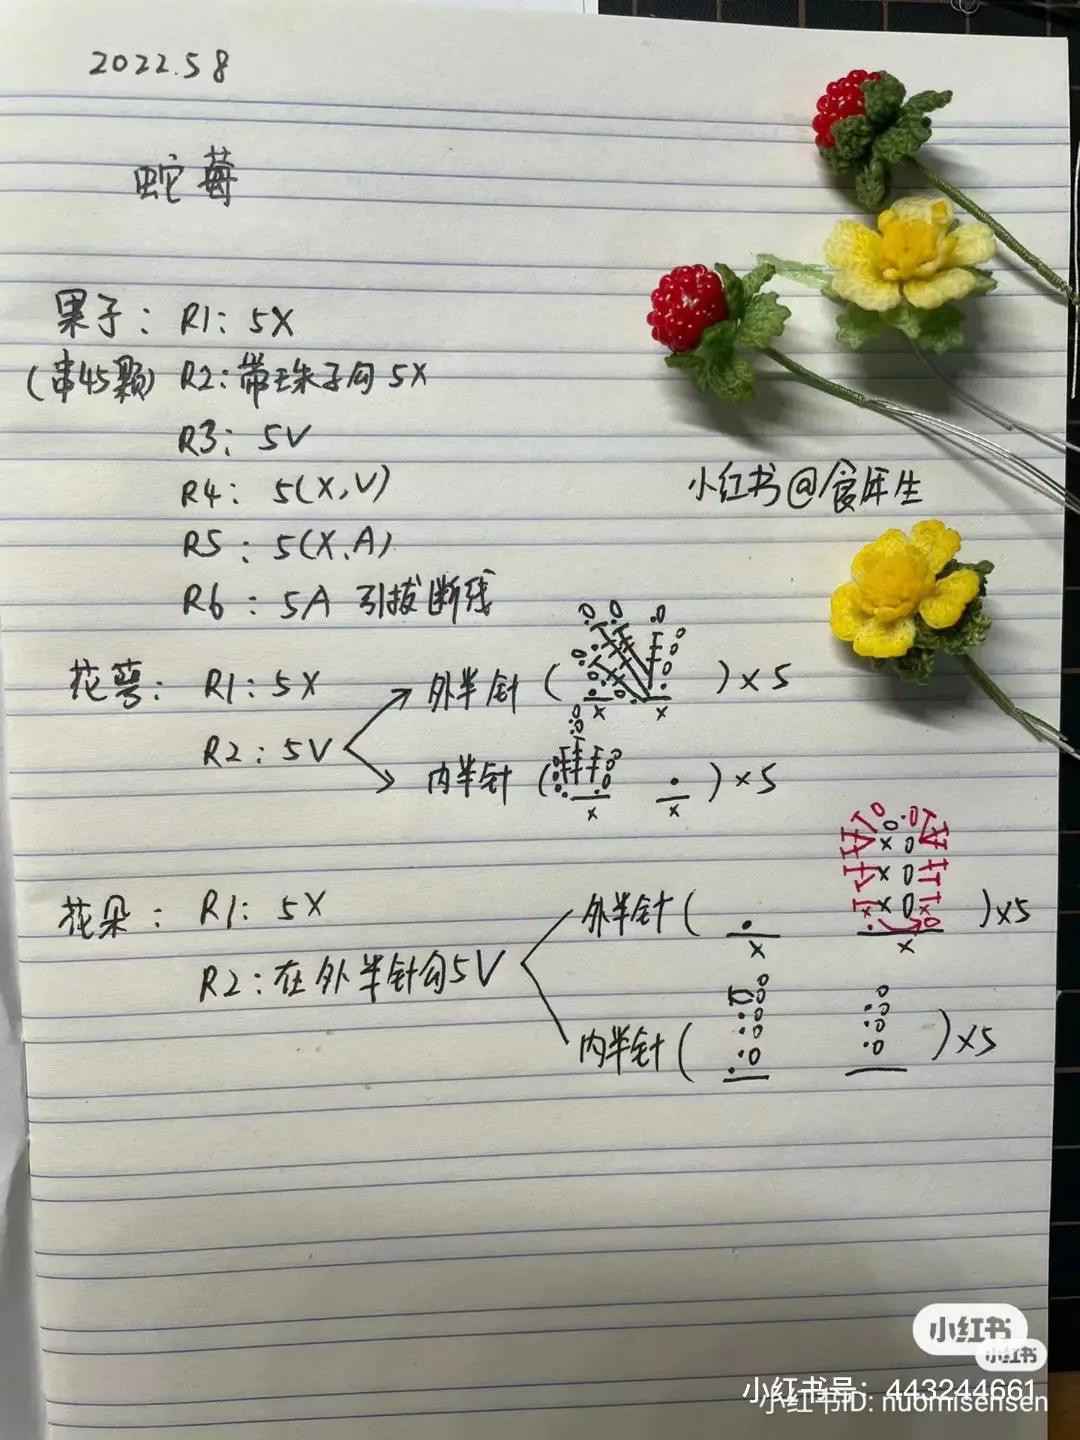 2022.5 8
蛇莓
果子: R1: 5X
(串45颗) R2: 带珠子勾 5X
R3: 5V
R4: 5(X,V)
R5: 5(X,A)
R6: 5A 引拔断线
小红书@食年生
花萼: R1: 5X
R2: 5V
外半针 ( ) x 5
内半针 ( ) x 5
花朵: R1: 5X
R2: 在外半针勾5V
外半针 ( ) x5
内半针 ( ) x5
小红书
小红书
小红书号: 443244661
小红书ID: nuomisensen